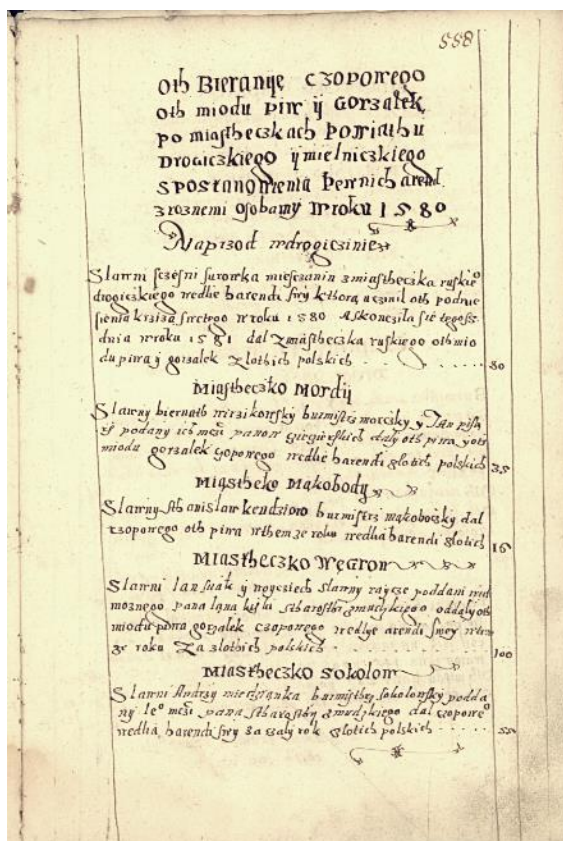 558
oth Bieranÿe czopowego
oth miodu piw ÿ Gorzałek
po miastheczkach powiathu
Drogiczkiego ÿ mielniczkiego
spostanowienia pewnich arend
z roznemi osobamÿ w roku 1580
Naprzod w drogiczinie
Slawni sczesni surowka miesczanin z miastheczka ruskieo
drogiczkiego wedlie harendi swÿ kthorą uczinil oth podnie
sienia krziza swetego w roku 1580 A skonczila sie tegosz
dnia w roku 1581 dal z miastheczka ruskiego oth mio
du piwa ÿ gorzalek zlothich polskich 80
Miastheczko Mordÿ
Slawnÿ biernath burmistrz ÿ Jan
podany ich panow dalÿ oth piwa ÿ oth
miodu gorzalek czopowego wedlie harendi zlotich polskich 35
Miastheko Mąkobodÿ
Slawnÿ sthanislaw kendzioro burmistrz mąkoboczkÿ dal
czopowego oth piwa w themze roku wedlia harendi zlotich 16
Miastheczko Węgrow
Slawni Jan ÿ slawny raycze poddani
moznego pana Jana kiski stharosthÿ zmudzkiego oddalÿ oth
miodu piwa gorzalek czopowego wedlÿe arendi swey w tem
ze roku za zlothich polskich 100
Miastheczko Sokolow
Slawni Andrzÿ miedzianka burmisthrz sokolowskÿ podda
nÿ Jeo pana stharosthÿ zmudzkiego dal czopoweo
wedlia harendi swÿ za calÿ rok zlotich polskich 55